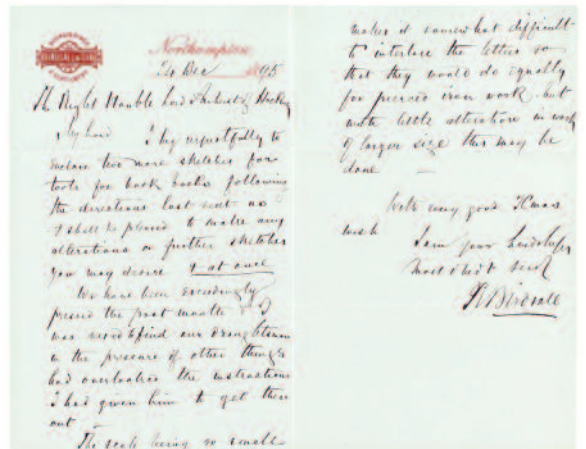 Northampton
24 Dec 1895
The Right Honble Lord Amherst of Hackney
My Lord I beg respectfully to
enclose two more sketches for
tools for book backs following
the directions last sent us
I shall be pleased to make any
alterations or further sketches
you may desire & at once
We have been exceedingly
pressed the past month & I
was vexed to find our draughtsman
in the pressure of other things
had overlooked the instructions
I had given him to get them
out
The scale being so small
makes it somewhat difficult
to interlace the letters so
that they would do equally
for pierced iron work but
with little alteration in work
of larger size this may be
done
With very good Xmas
wish
I am your Lordships
most obedt servt
Birdsall